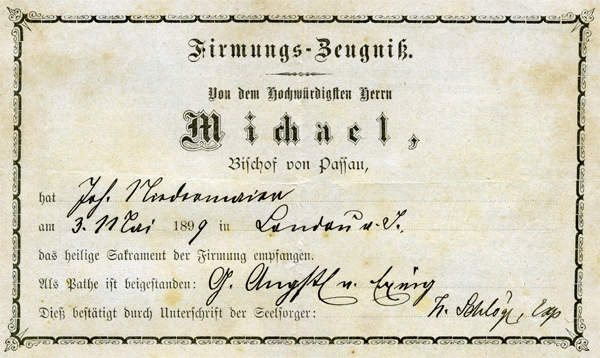 Firmungs-Zeugniß.
Von dem Hochwürdigsten Herrn
Michael,
Bischof von Passau,
hat Joh. Niedermaier
am 3. Mai 1899 in Landau a. I.
das heilige Sakrament der Firmung empfangen.
Als Pathe ist beigestanden: G. Angstl v.
Dieß bestätigt durch Unterschrift der Seelsorger: